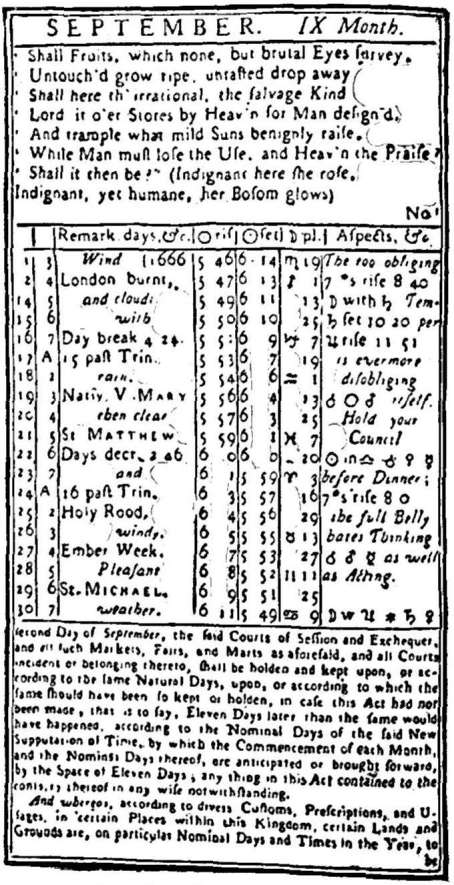 SEPTEMBER. IX Month.
‘ Shall Fruits, which none, but brutal Eyes ſurvey,
‘ Untouch’d grow ripe, untaſted drop away
‘ Shall here th’ irrational, the ſalvage Kind
‘ Lord it o’er Stores by Heav’n for Man deſign’d,
‘ And trample what mild Suns benignly raiſe,
‘ While Man muſt loſe the Uſe, and Heav’n the Praiſe?
‘ Shall it then be?” (Indignant here ſhe roſe,
Indignant, yet humane, her Boſom glows)
No!
Remark. days, &c. ☉ riſ ☉ ſet ☽ pl. Aſpects, &c.
1 3 Wind (1666 5 46 6 14 ♏ 19 The too obliging
2 4 London burnt, 5 47 6 13 ♐ 1 7 *s riſe 8 40
14 5 and clouds 5 49 6 11 13 ☽ with ♄ Tem-
15 6 with 5 50 6 10 25 ♄ ſet 10 20 per
16 7 Day break 4 24. 5 51 6 9 ♑ 7 ♃ riſe 11 51
17 A 15 paſt Trin. 5 53 6 7 19 is evermore
18 2 rain. 5 54 6 6 ♒ 1 diſobliging
19 3 Nativ. V. MARY 5 56 6 4 13 ☌ ☉ ♂ itſelf.
20 4 then clear 5 57 6 3 25 Hold your
21 5 St MATTHEW 5 59 6 1 ♓ 7 Council
22 6 Days decr. 2 46 6 0 6 0 20 ☉ in ♎ ☌ ♀ ☿
23 7 and 6 1 5 59 ♈ 3 before Dinner;
24 A 16 paſt Trin. 6 3 5 57 16 7 *s riſe 8 0
25 2 Holy Rood, 6 4 5 56 29 the full Belly
26 3 windy, 6 5 5 55 ♉ 13 hates Thinking
27 4 Ember Week. 6 7 5 53 27 ☌ ♂ ☿ as well
28 5 Pleaſant 6 8 5 52 ♊ 11 as Acting.
29 6 St. MICHAEL. 6 9 5 51 25
30 7 weather. 6 11 5 49 ♋ 9 ☽ w ♃ ✱ ♄ ☿
ſecond Day of September, the ſaid Courts of Seſſion and Exchequer,
and all ſuch Markets, Fairs, and Marts as aforeſaid, and all Courts
incident or belonging thereto, ſhall be holden and kept upon, or ac-
cording to the ſame Natural Days, upon, or according to which the
ſame ſhould have been ſo kept or holden, in caſe this Act had not
been made, that is to ſay, Eleven Days later than the ſame would
have happened, according to the Nominal Days of the ſaid New
Supputation of Time, by which the Commencement of each Month,
and the Nominal Days thereof, are anticipated or brought forward,
by the Space of Eleven Days; any thing in this Act contained to the
contrary thereof in any wiſe notwithſtanding.
And whereas, according to divers Cuſtoms, Preſcriptions, and U-
ſages, in certain Places within this Kingdom, certain Lands and
Grounds are, on particular Nominal Days and Times in the Year, to
be